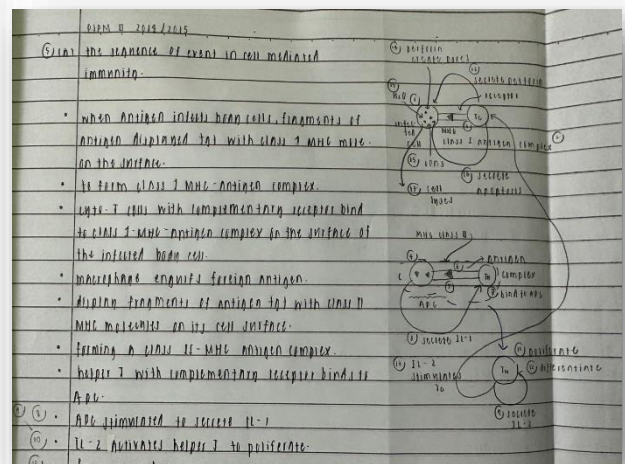 PSPM II 2018/2019
5) (a) the sequence of event in cell mediated
immunity.
• when antigen infects body cells, fragments of
antigen displayed tgt with class I MHC mole.
on the surface.
• to form class I MHC-antigen complex.
• cyto-T cells with complementary receptor bind
to class I-MHC-antigen complex on the surface of
the infected body cell.
• macrophage engulfs foreign antigen.
• display fragments of antigen tgt with class II
MHC molecules on its cell surface.
• forming a class II-MHC antigen complex.
• helper T with complementary receptor binds to
APC.
• APC stimulated to secrete IL-1
• IL-2 activates helper T to poliferate.
perforin
create pores
secrete perforin
receptor
infec
ted
cell
Tc
MHC
class I antigen complex
ions
secrete
apoptosis
cell
lyses
MHC class II
antigen
complex
TH
bind to APC
APC
secrete IL-1
IL-2
stimulates
Tc
poliferate
differentiate
TH
secrete
IL-2